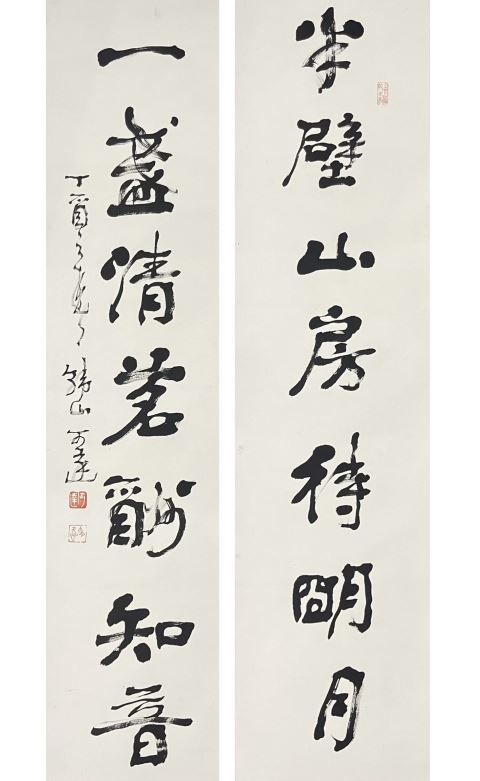 半壁山房待明月
一盞清茗酬知音
丁酉